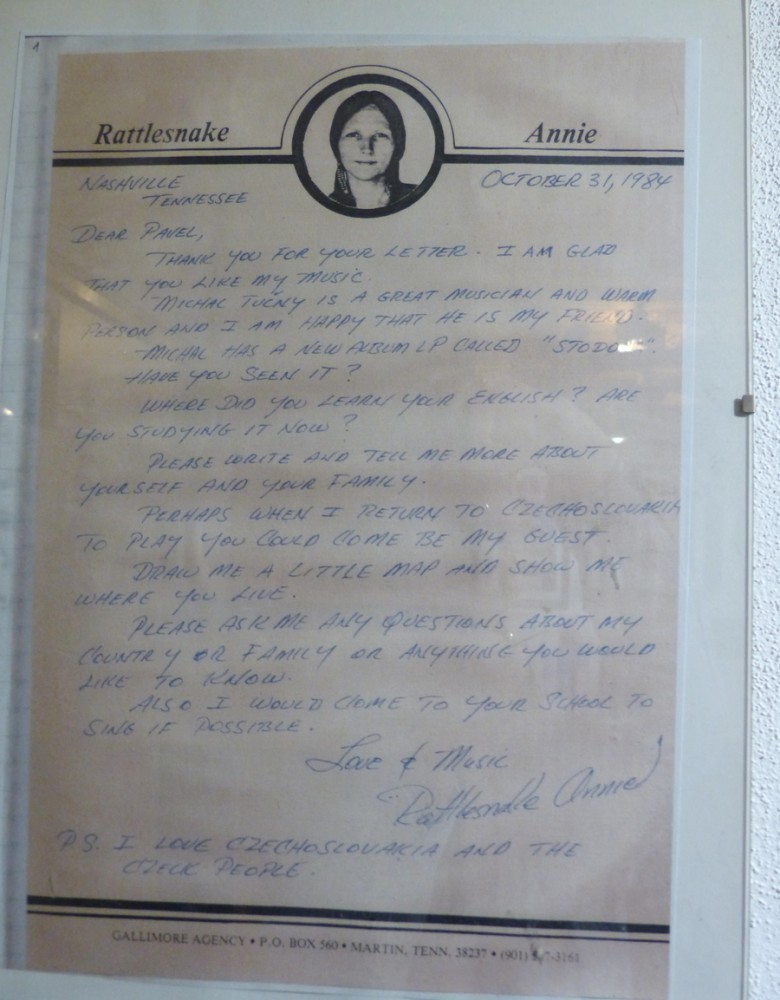 1
Rattlesnake Annie
NASHVILLE OCTOBER 31, 1984
TENNESSEE
DEAR PAVEL,
THANK YOU FOR YOUR LETTER. I AM GLAD
THAT YOU LIKE MY MUSIC.
MICHAL TUČNY IS A GREAT MUSICIAN AND WARM
PERSON AND I AM HAPPY THAT HE IS MY FRIEND.
MICHAL HAS A NEW ALBUM LP CALLED
HAVE YOU SEEN IT?
WHERE DID YOU LEARN YOUR ENGLISH? ARE
YOU STUDYING IT NOW?
PLEASE WRITE AND TELL ME MORE ABOUT
YOURSELF AND YOUR FAMILY.
PERHAPS WHEN I RETURN TO CZECHOSLOVAKIA
TO PLAY YOU COULD COME BE MY GUEST.
DRAW ME A LITTLE MAP AND SHOW ME
WHERE YOU LIVE.
PLEASE ASK ME ANY QUESTIONS ABOUT MY
COUNTRY OR FAMILY OR ANYTHING YOU WOULD
LIKE TO KNOW.
ALSO I WOULD COME TO YOUR SCHOOL TO
SING IF POSSIBLE.
Love & Music
Rattlesnake Annie
P.S. I LOVE CZECHOSLOVAKIA AND THE
CZECK PEOPLE.
GALLIMORE AGENCY • P.O. BOX 560 • MARTIN, TENN. 38237 • (901)